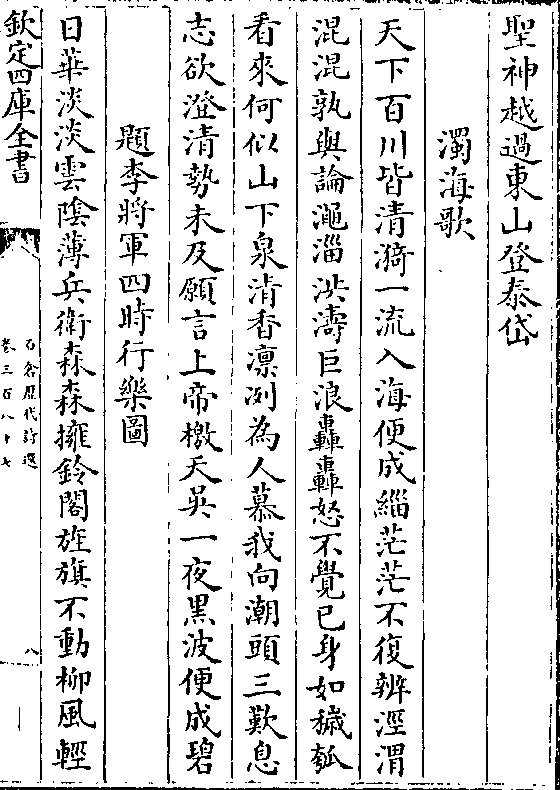 聖神越過東山登泰岱
濁海歌
天下百川皆清漪一流入海便成緇茫茫不復辨涇渭
混混孰與論澠淄洪濤巨浪轟轟怒不覺已身如穢瓠
看來何似山下泉清香凛冽為人慕我向潮頭三歎息
志欲澄清勢未及願言上帝檄天吳一夜黑波便成碧
題李將軍四時行樂圖
日華淡淡雲陰薄兵衛森森擁鈴閣旌旗不動柳風輕
欽定四庫全書
石倉歷代詩選
卷三百八十七
八